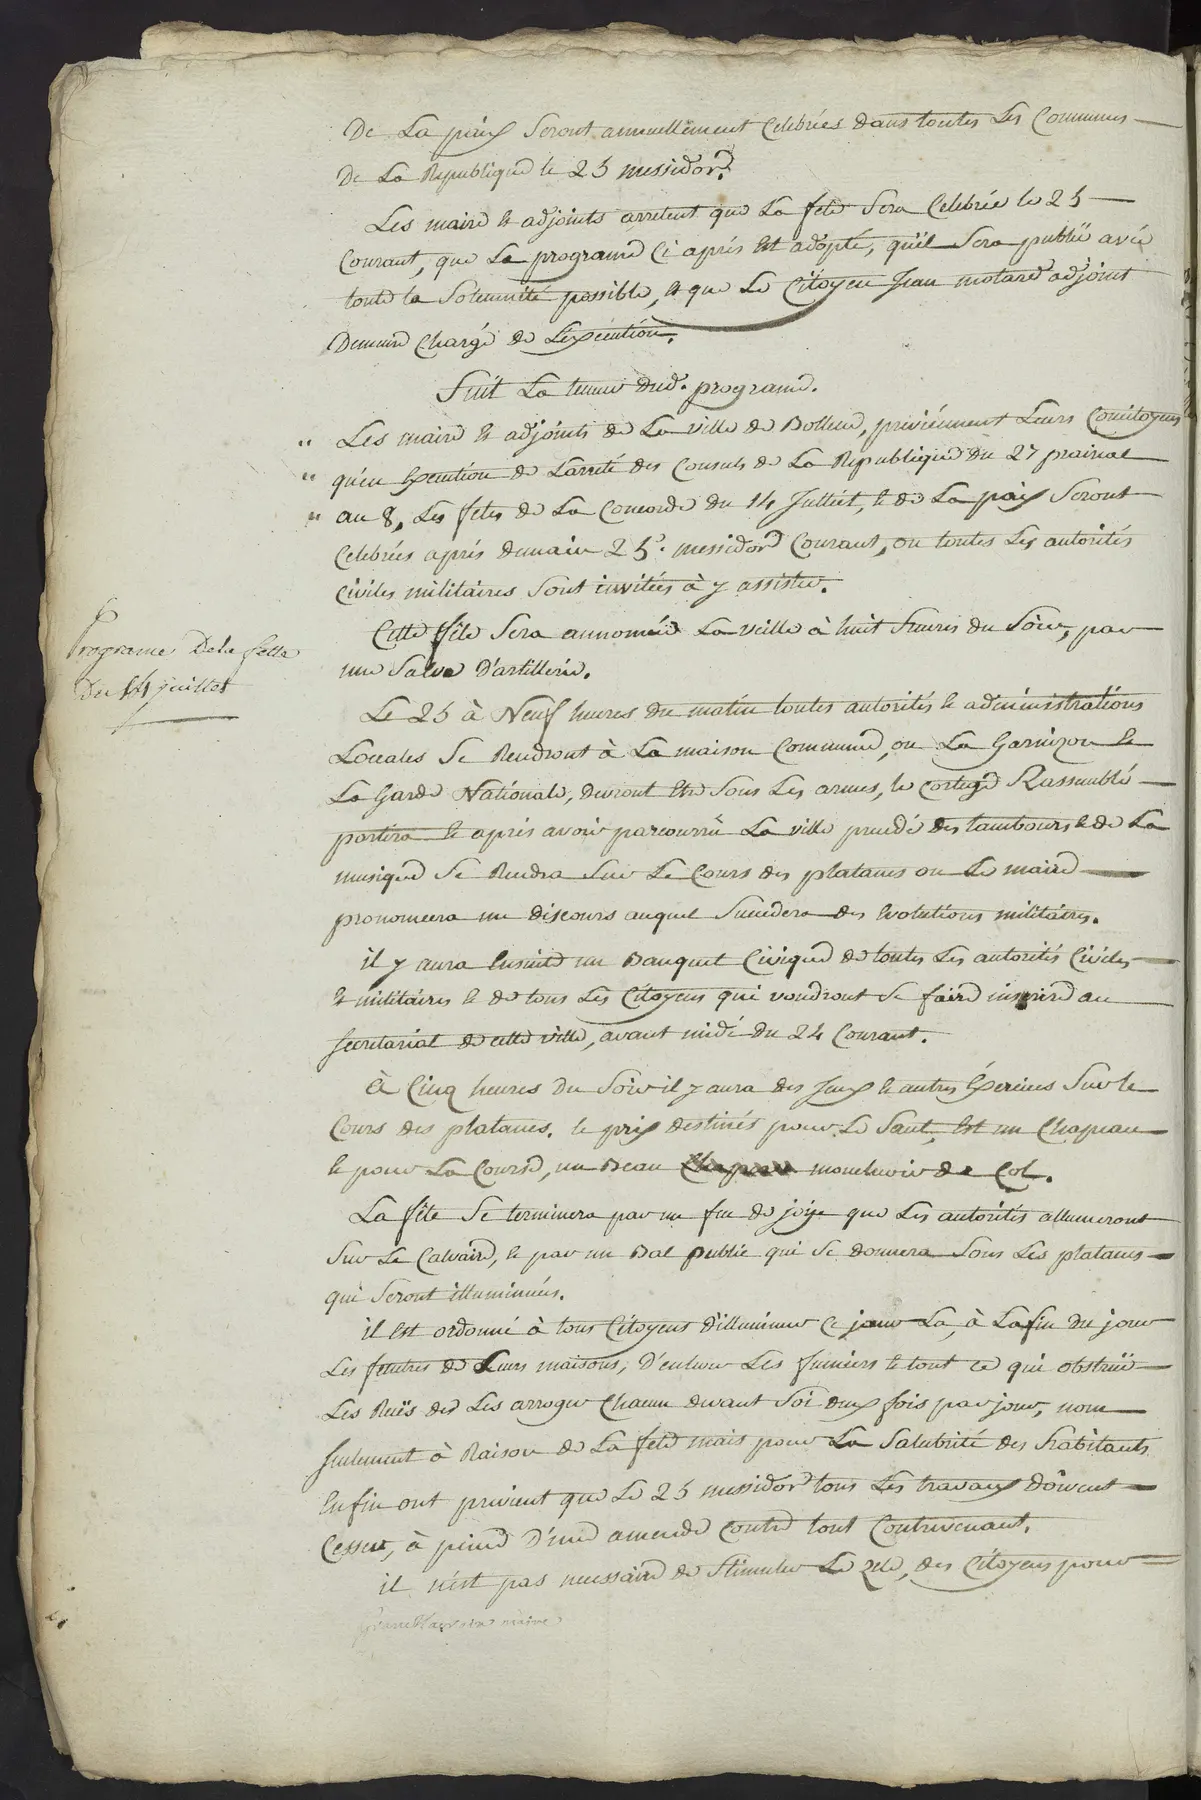 De La paix Seront annuellement Celebrées dans toutes Les Communes
De La Republique le 25 messidor.
Les maire & adjoints arretent que La fete Sera Celebrée le 25
Courant, que Le programe Ci après Est adopté, qu'il Sera publié avec
toute la Solemnité possible, & que Le Citoyen Jean motard adjoint
Demeure Chargé de L'execution.
Suit La teneur dud. programe.
" Les maire & adjoints de La ville de Bollene, previennent Leurs Concitoyens
" qu'en Execution de L'arreté des Consuls de La Republique du 27 prairial
" au 8, Les fetes de La Concorde du 14 Juillet, & de La paix Seront
Celebrées après demain 25. messidor Courant, ou toutes Les autorités
Civiles militaires Sont invitées à y assister.
Programe De la fette
Du 14 juillet
Cette fête Sera annoncée La veille à huit heures du Soir, par
une Salve D'artillerie.
Le 25 à Neuf heures du matin toutes autorités & administrations
Locales Se Rendront à La maison Commune, ou La Garnizon &
La Garde Nationale, devront Etre Sous Les armes, le Cortege Rassemblé
partira & après avoir parcourru La ville precedé des tambours & de La
musique Se Rendra Sur Le Cours des platanes ou Le maire
prononcera un discours auquel Succedera des Evolutions militaires.
il y aura Ensuite un Banquet Civique de toutes Les autorités Civiles
& militaires & de tous Les Citoyens qui voudront Se faire inscrire au
secretariat de cette ville, avant midi du 24 Courant.
à Cinq heures du Soir il y aura des Jeux & autres Exercices Sur le
Cours des platanes. le prix destinés pour Le Saut, Est un Chapeau
& pour La Course, un Beau mouchoir de Col.
La fête Se terminera par un feu de joye que Les autorités allumeront
Sur Le Calvaire, & par un Bal public qui Se donnera Sous Les platanes
qui Seront illuminées.
il Est ordonné à tous Citoyens d'illuminer Ce jour La, à La fin du jour
Les fenetres de Leurs maisons, D'enlever Les fumiers & tout ce qui obstrüe
Les Ruës de Les arroger Chacun devant Soi deux fois par jour, nom
seulement à Raison de La fete mais pour La Salubrité des habitants
Enfin ont previent que Le 25 messidor tous Les travaux doivent
Cesser, à peine D'une amende Contre tout Contrevenant.
il n'est pas necessaire de Stimuler Le zele, des Citoyens pour
maire